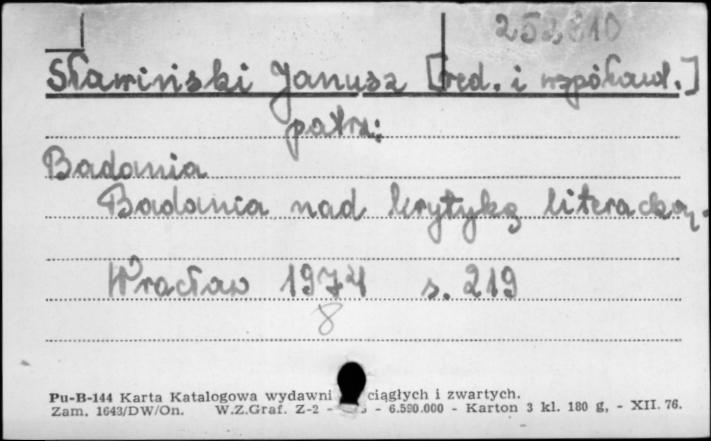 252810
Sławiński Janusz [red. i współaut.]
patrz:
Badania
Badania nad krytyką literacką.
Wrocław 1974 s. 219
8
Pu-B-144 Karta Katalogowa wydawni ciągłych i zwartych.
Zam. 1643/DW/On. W.Z.Graf. Z-2 - - 6.590.000 - Karton 3 kl. 180 g, - XII. 76.